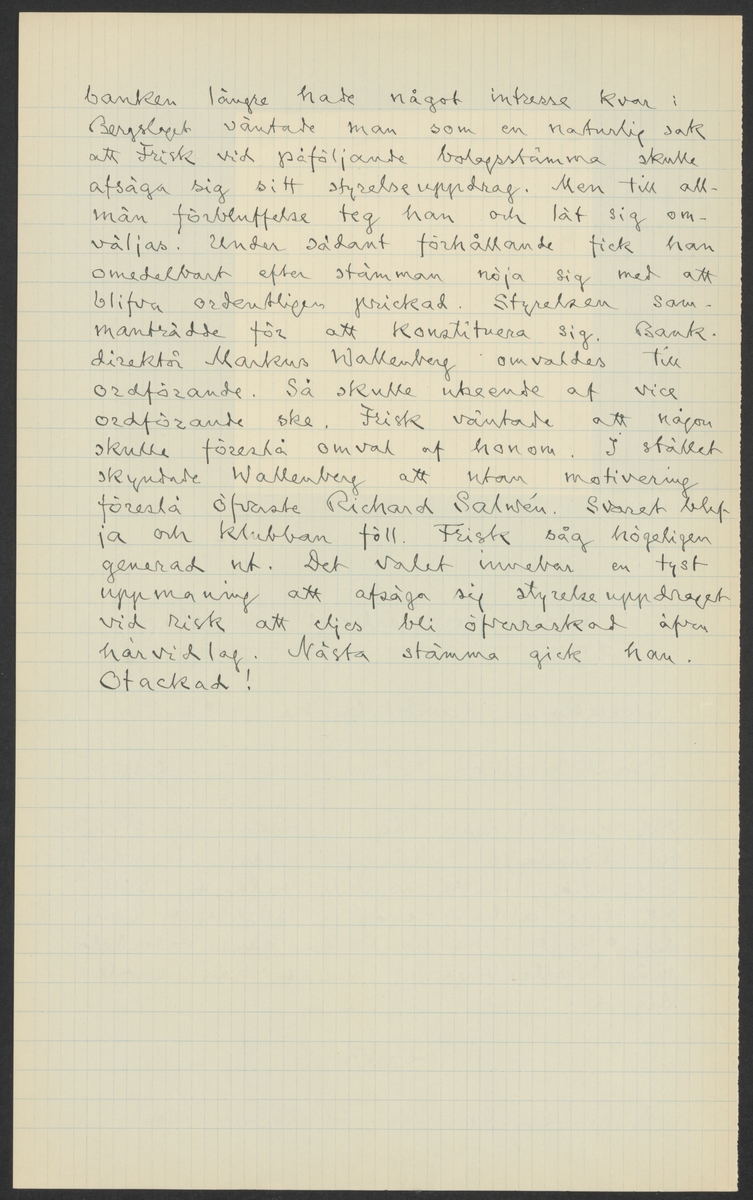 banken längre hade något intresse kvar i
Bergslaget väntade man som en naturlig sak
att Frisk vid påföljande bolagsstämma skulle
afsäga sig sitt styrelseuppdrag. Men till all-
män förbluffelse teg han och lät sig om-
väljas. Under sådant förhållande fick han
omedelbart efter stämman nöja sig med att
blifva ordentligen prickad. Styrelsen sam-
manträdde för att konstituera sig. Bank-
direktör Markus Wallenberg omvaldes till
ordförande. Så skulle utseende af vice
ordförande ske. Frisk väntade att någon
skulle föreslå omval af honom. I stället
skyndade Wallenberg att utan motivering
föreslå öfverste Richard Salwén. Svaret blef
ja och klubban föll. Frisk såg högeligen
generad ut. Det valet innebar en tyst
uppmaning att afsäga sig styrelseuppdraget
vid risk att eljes bli öfverraskad äfven
härvidlag. Nästa stämma gick han.
Otackad!